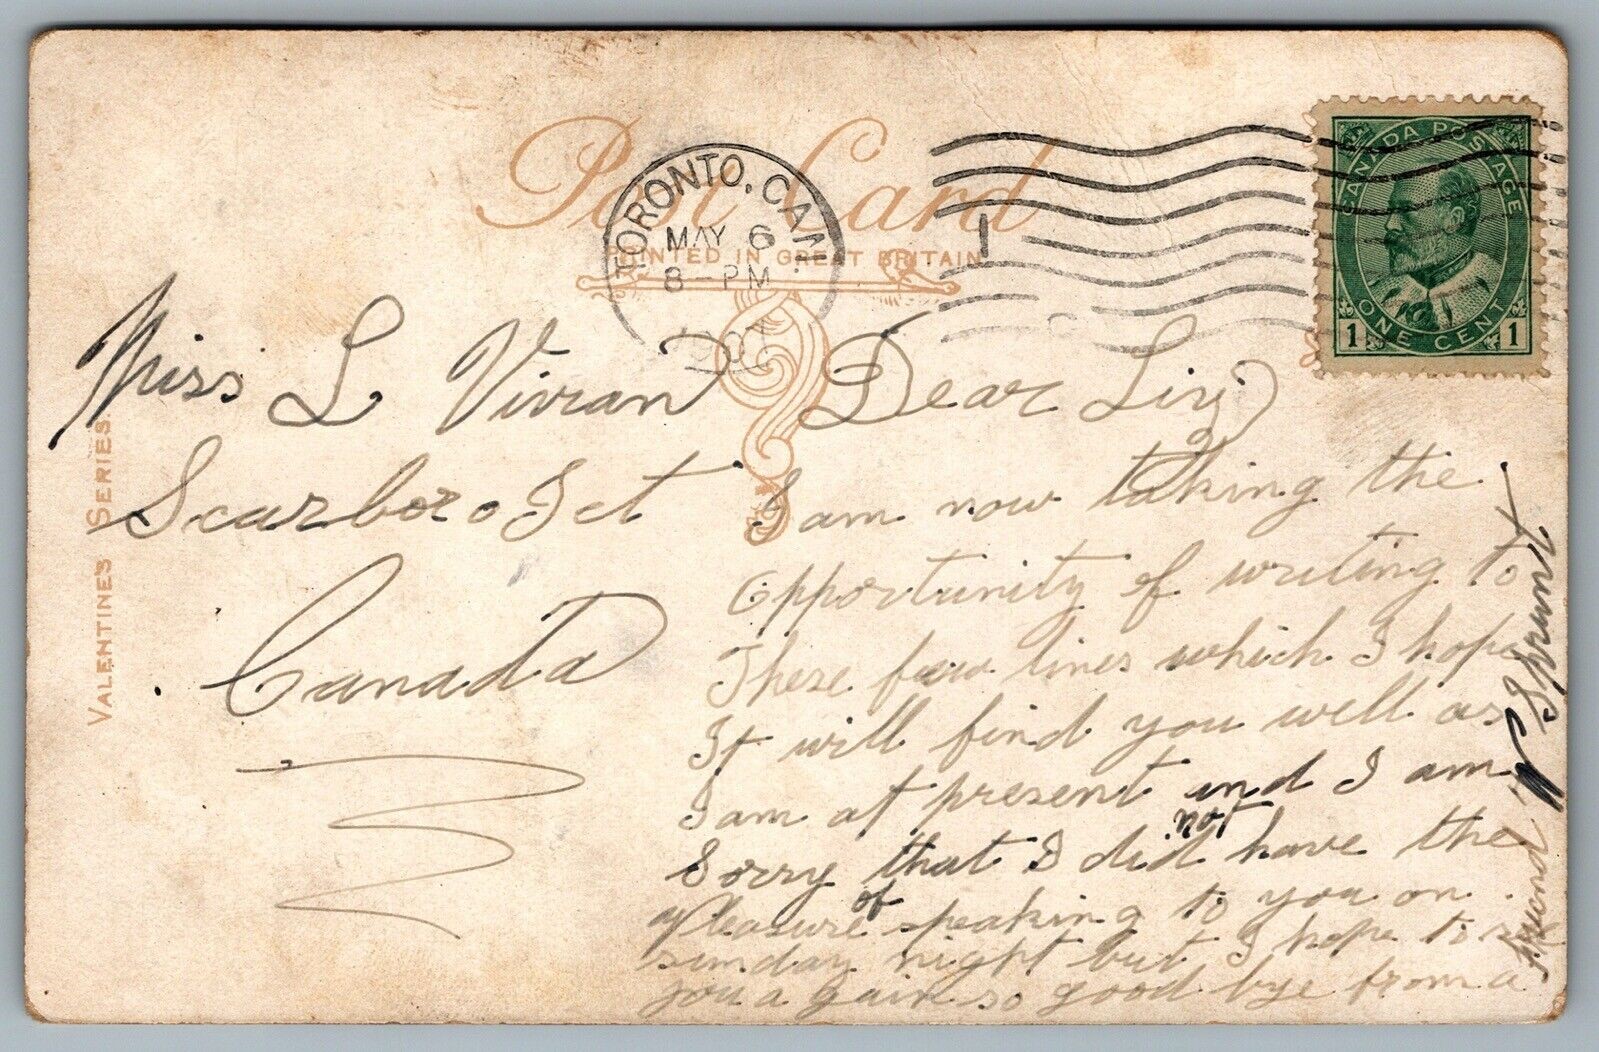 Post Card
PRINTED IN GREAT BRITAIN
VALENTINES SERIES
TORONTO, CAN.
MAY 6
8-PM
1907
1
CANADA POSTAGE
1 ONE CENT 1
Miss L Vivian
Scarboro Jct
Canada
Dear Lizy
I am now taking the
Opportunity of writing to
These few lines which I hope
It will find you well as
I am at present and I am
Sorry that I did not have the
pleasure of speaking to you on
sunday night but I hope to see
you again so good bye from a
friend W Sprunt